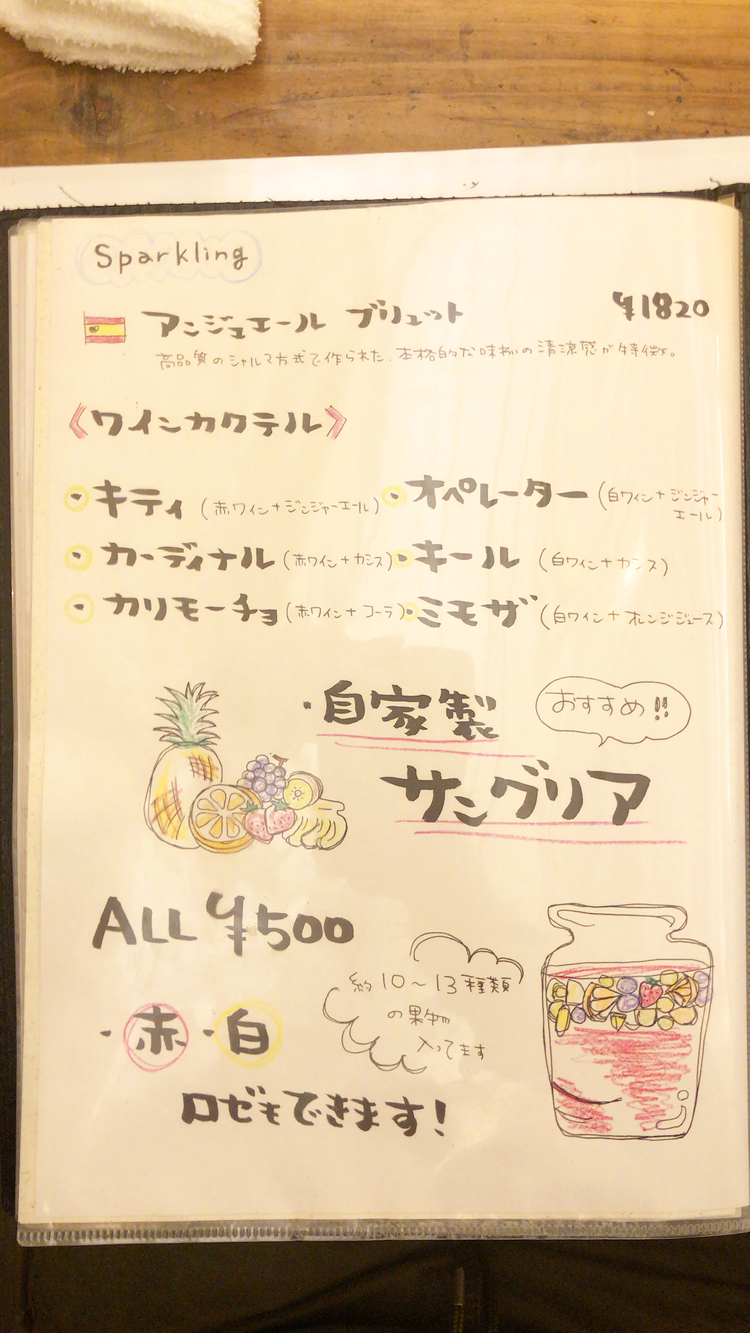 Sparkling
アンジュエール ブリュット ¥1820
高品質のシャルマ方式で作られた、本格的な味わいの清涼感が特徴。
《ワインカクテル》
・キティ (赤ワイン+ジンジャーエール) ・オペレーター (白ワイン+ジンジャー
エール)
・カーディナル (赤ワイン+カシス) ・キール (白ワイン+カシス)
・カリモーチョ (赤ワイン+コーラ) ・ミモザ (白ワイン+オレンジジュース)
・自家製 おすすめ!!
サングリア
ALL ¥500
約10〜13種類
の果物
入ってます
・赤・白
ロゼもできます!